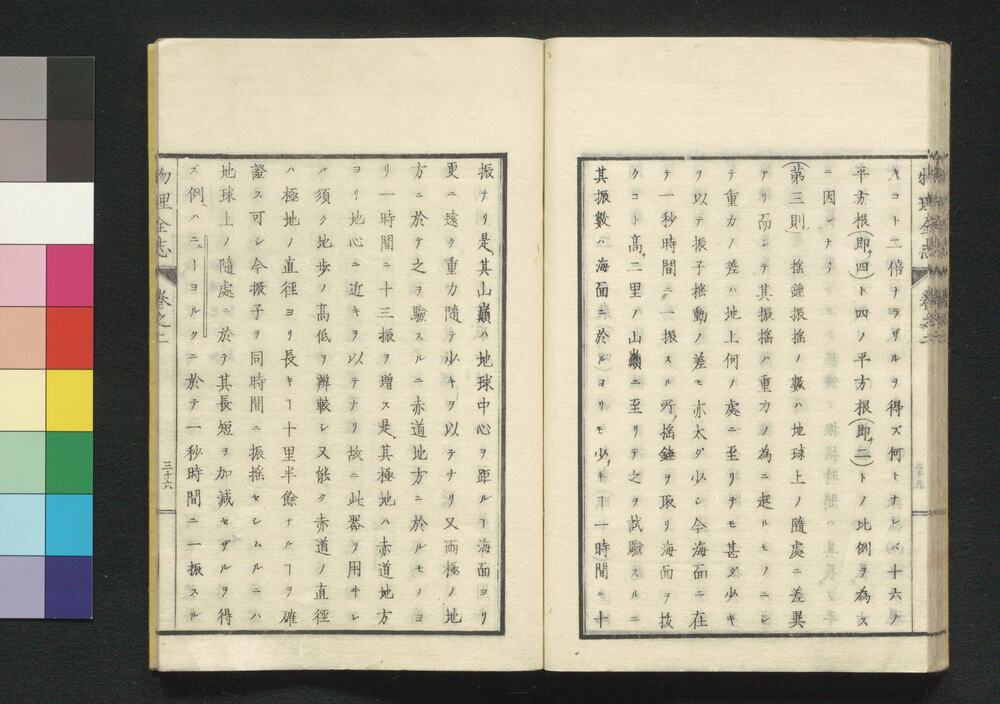 キコト二倍ナラザルヲ得ズ何トナレバ十六ノ
平方根(即四)ト四ノ平方根(即二)トノ比例ヲ為ス
ニ因ルナリ
(第三則) 揺錘振揺ノ數ハ地球上ノ隨處ニ差異
アリ而シテ其振揺ハ重力ノ為ニ起ルモノニシ
テ重力ノ差ハ地上何ノ處ニ至リテモ甚ダ少キ
ヲ以テ振子揺動ノ差モ亦太ダ少シ今海面ニ在
テ一秒時間ニ一振スル所ノ揺錘ヲ取リ海面ヲ抜
クコト高サ二里ノ山巓ニ至リテ之ヲ試驗スルニ
其振數ハ海面ニ於ルヨリモ少キヿ一時間ニ十
物理全志 卷之二
振ナリ是レ其山巓ハ地球中心ヲ距ルヿ海面ヨリ
更ニ遠ク重力隨テ少キヲ以テナリ又両極ノ地
方ニ於テ之ヲ驗スルニ赤道地方ニ於ルモノヨ
リ一時間ニ十三振ヲ増ス是レ其極地ハ赤道地方
ヨリ地心ニ近キヲ以テナリ故ニ此器ヲ用ヰレ
バ須ク地歩ノ高低ヲ辨較シ又能ク赤道ノ直徑
ハ極地ノ直徑ヨリ長キヿ十里半餘ナルヿヲ確
證ス可シ今振子ヲ同時間ニ振揺セシムルニハ
地球上ノ隨處ニ於テ其長短ヲ加減セザルヲ得
ズ例ヘバニーヨルクニ於テ一秒時間ニ一振スル
物理全志 卷之二 三十六